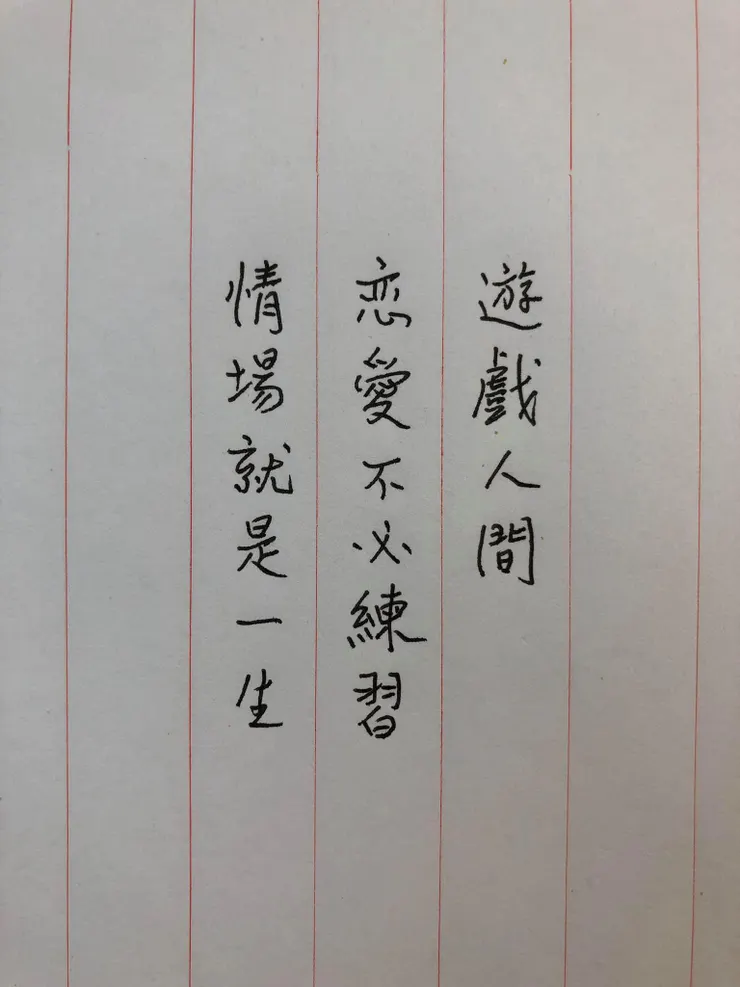 遊戲人間
恋愛不必練習
情場就是一生